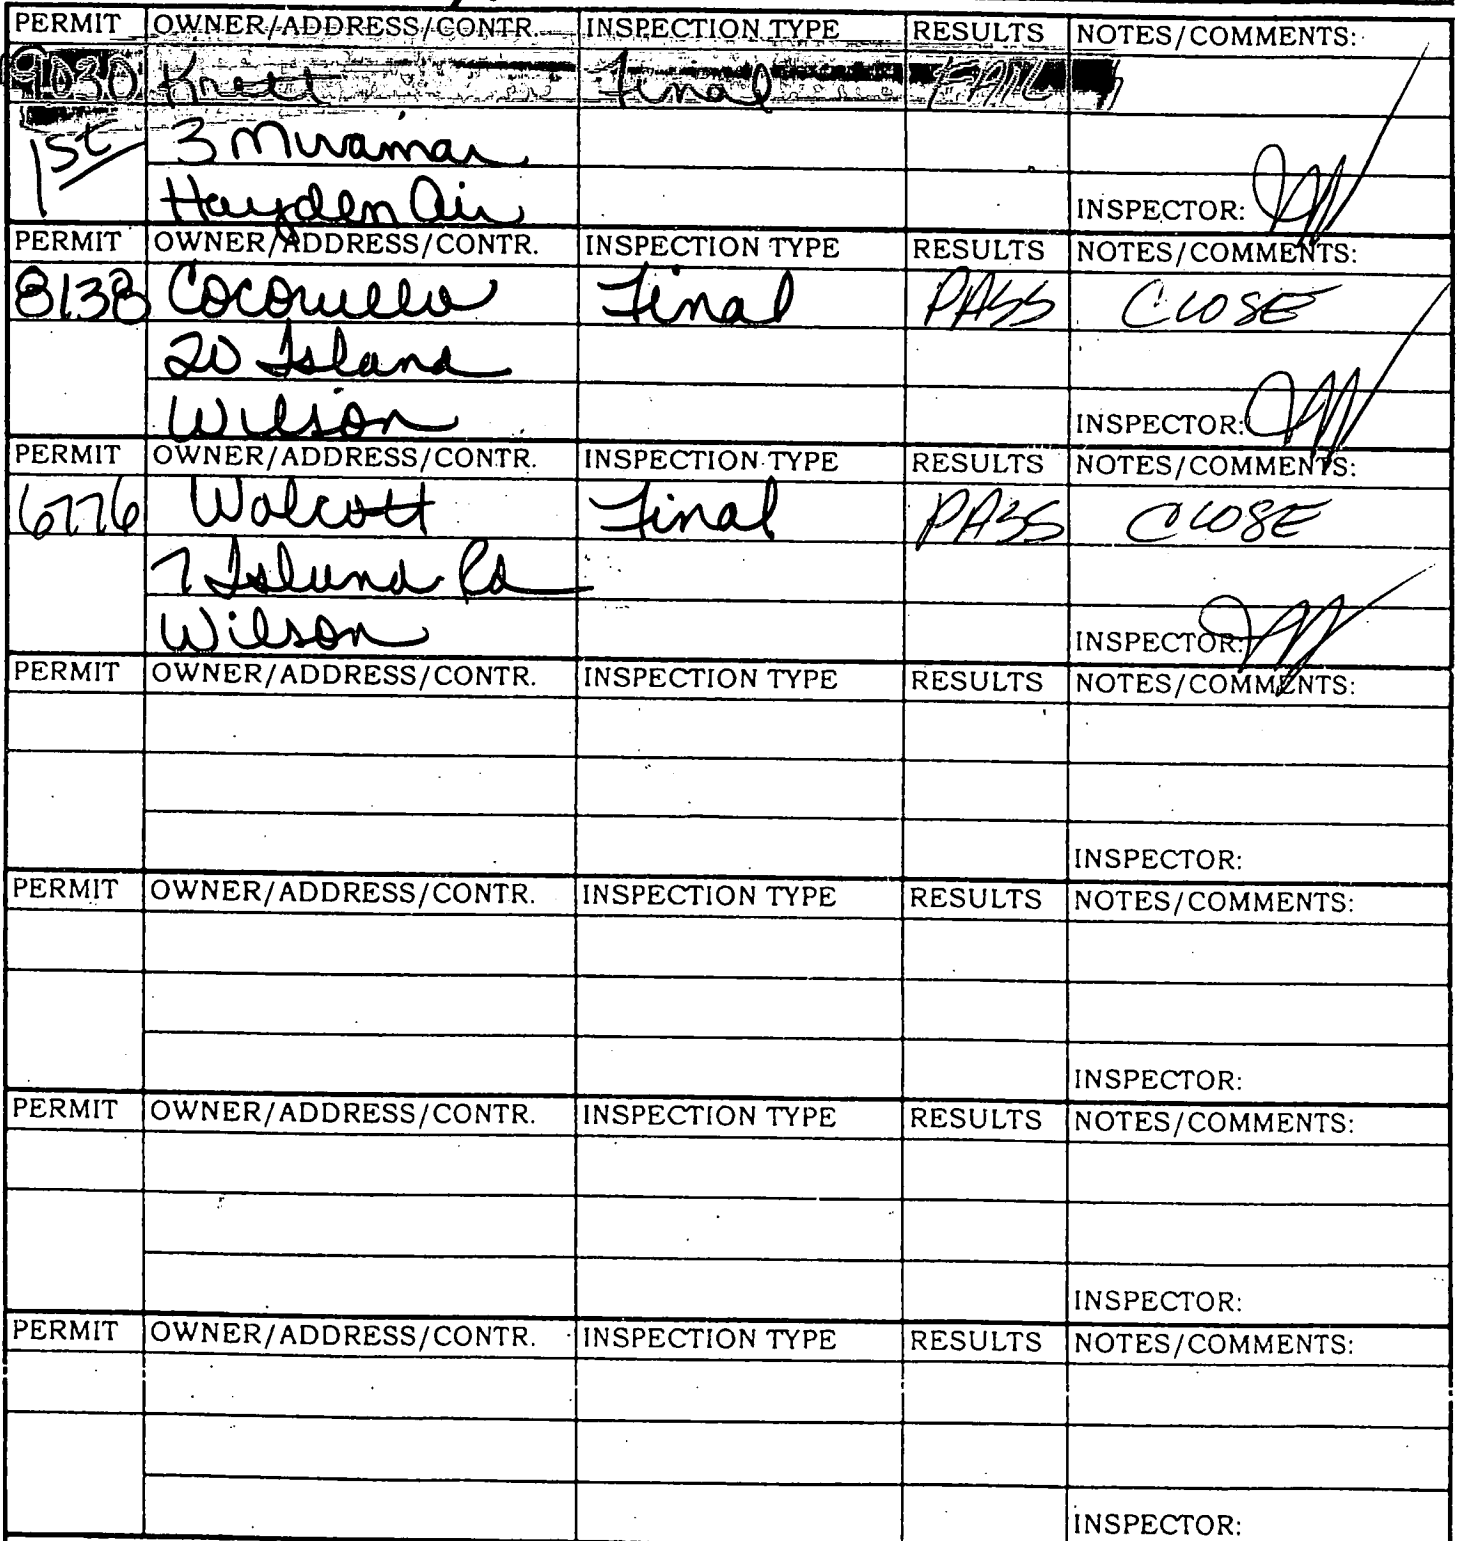 PERMIT OWNER/ADDRESS/CONTR. INSPECTION TYPE RESULTS NOTES/COMMENTS:
9030 Final FAIL
1st 3 Miramar
Hayden Air INSPECTOR:
PERMIT OWNER/ADDRESS/CONTR. INSPECTION TYPE RESULTS NOTES/COMMENTS:
8138 Final PASS CLOSE
20 Island
Wilson INSPECTOR:
PERMIT OWNER/ADDRESS/CONTR. INSPECTION TYPE RESULTS NOTES/COMMENTS:
6776 Wolcott Final PASS CLOSE
7 Island Rd
Wilson INSPECTOR:
PERMIT OWNER/ADDRESS/CONTR. INSPECTION TYPE RESULTS NOTES/COMMENTS:
INSPECTOR:
PERMIT OWNER/ADDRESS/CONTR. INSPECTION TYPE RESULTS NOTES/COMMENTS:
INSPECTOR:
PERMIT OWNER/ADDRESS/CONTR. INSPECTION TYPE RESULTS NOTES/COMMENTS:
INSPECTOR:
PERMIT OWNER/ADDRESS/CONTR. INSPECTION TYPE RESULTS NOTES/COMMENTS:
INSPECTOR: